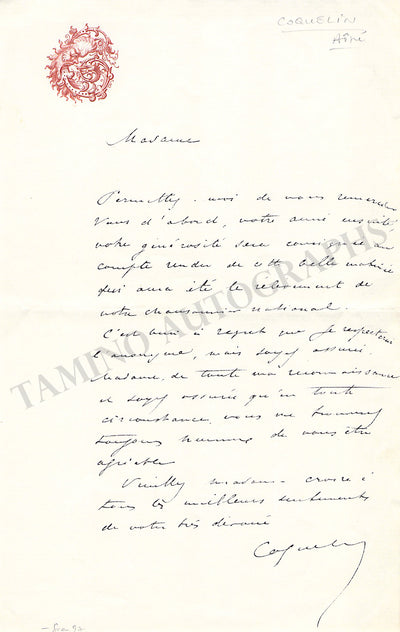 COQUELIN
AÎNÉ
Madame
Permettez-moi de vous remercier
Vous d'abord, votre ami ensuite
votre générosité sera consignée au
compte rendu de cette belle matinée
qui aura été le
votre chansonnier national.
C'est avec regret que je respecterai
l'anonyme, mais soyez assurée,
Madame, de toute ma reconnaissance
et soyez assurée qu'en toute
circonstance, vous me trouverez
toujours heureux de vous être
agréable
Veuillez madame croire à
tous les meilleurs sentiments
de votre très dévoué
Coquelin
TAMINO AUTOGRAPHS